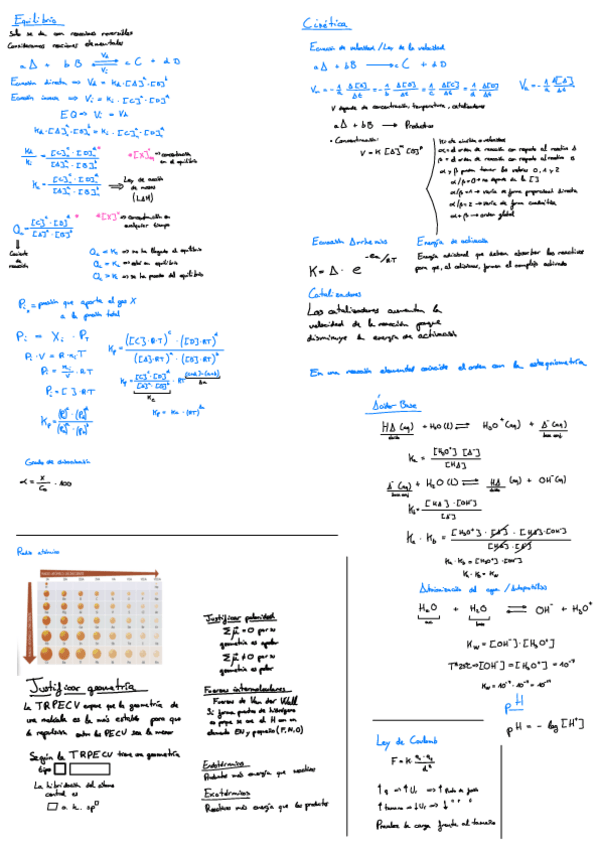 Equilibrio
Solo se da con reacciones reversibles
Consideramos reacciones elementales
a A + b B ⇌ c C + d D
Ecuación directa ⇒ Vd = Kd·[A]^a·[B]^b
Ecuación inversa ⇒ Vi = Ki·[C]^c·[D]^d
EQ ⇒ Vi = Vd
Kd·[A]^a·[B]^b = Ki·[C]^c·[D]^d
[X]eq ⇒ concentración
en el equilibrio
Ley de acción
de masas
(LAM)
⇒ concentración en
cualquier tiempo
Cociente
de
reacción
Qc < Kc ⇒ no ha llegado al equilibrio
Qc = Kc ⇒ está en equilibrio
Qc > Kc ⇒ se ha pasado del equilibrio
Pi = presión que aporta el gas X
a la presión total
Pi = Xi · PT
Pi · V = n · R · T
Pi = ni/V · RT
Pi = [C]·R·T
Kp = Kc · (RT)^Δn
Grado de disociación
α = X/C0 · 100
Cinética
Ecuación de velocidad / Ley de la velocidad
a A + b B → c C + d D
V depende de concentración, temperatura, catalizadores
aA + bB → Productos
• Concentración:
V = K [A]^α [B]^β
K = cte cinética o velocidad
α = orden de reacción con respecto al reactivo A
β = orden de reacción con respecto al reactivo B
α y β pueden tomar los valores 0, 1 y 2
α/β = 0 → no depende de la []
α/β = 1 → varía de forma proporcional directa
α/β = 2 → varía de forma cuadrática
α + β → orden global
Ecuación Arrhenius
K = A · e^-Ea/RT
Energía de activación
Energía adicional que deben absorber los reactivos
para que, al colisionar, formen el complejo activado
Catalizadores
Los catalizadores aumentan la
velocidad de la reacción porque
disminuye la energía de activación
En una reacción elemental coincide el orden con la estequiometría
Ácido-Base
HA (aq) + H2O (l) ⇌ H3O+ (aq) + A- (aq)
ácido
base conj
Ka = [H3O+]·[A-] / [HA]
A- (aq) + H2O (l) ⇌ HA (aq) + OH- (aq)
base conj
ácido
Kb = [HA]·[OH-] / [A-]
Ka · Kb = [H3O+]·[A-]·[HA]·[OH-] / [HA]·[A-]
Ka · Kb = [H3O+]·[OH-]
Ka · Kb = Kw
H2O + H2O ⇌ OH- + H3O+
base
Kw = [OH-]·[H3O+]
Tª 25ºC ⇒ [OH-] = [H3O+] = 10^-7
Kw = 10^-7 · 10^-7 = 10^-14
pH
pH = - log [H+]
Radio atómico
Justificar geometría
La TRPECV expone que la geometría de
una molécula es la más estable para que
la repulsión entre los PECV sea la menor
Según la TRPECV tiene una geometría
tipo
La hibridación del átomo
central es
Justificar polaridad
Σμ = 0 por su
geometría es apolar
Σμ ≠ 0 por su
geometría es polar
Fuerzas intermoleculares
Fuerzas de Van der Wall
Si forma puentes de hidrógeno
es porque se une el H con un
elemento EN y pequeño (F, N, O)
Endotérmica
Producto más energía que reactivos
Exotérmica
Reactivos más energía que los productos
Ley de Coulomb
F = K q1·q2 / d²
Predomina la carga frente al tamaño